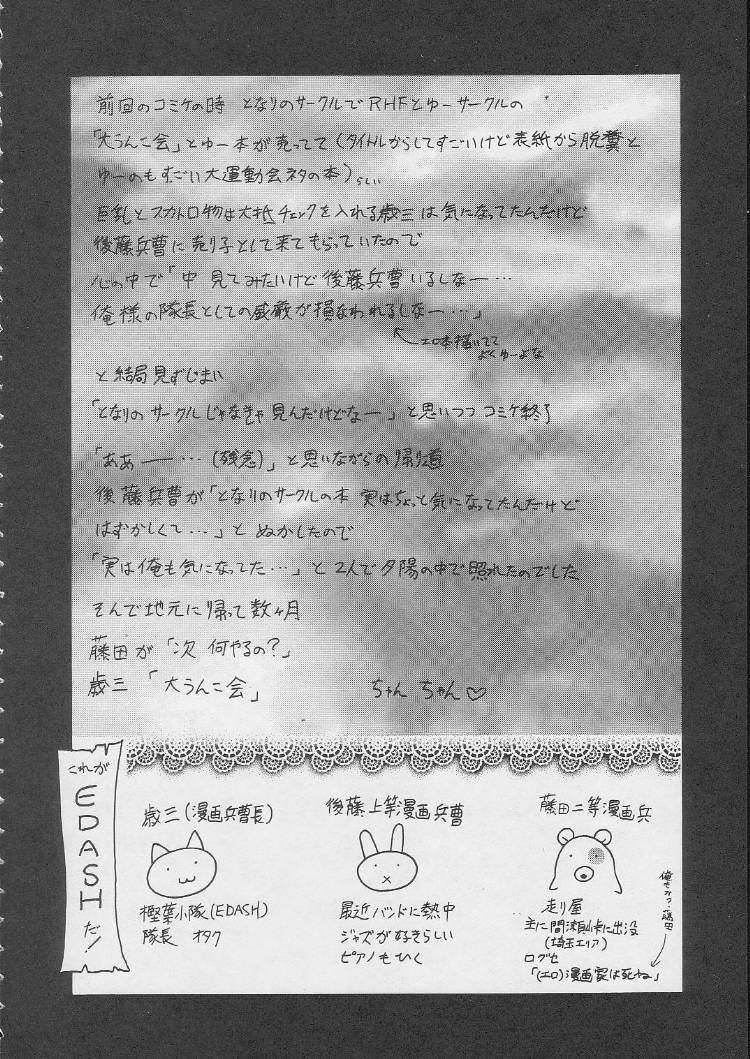 前回のコミケの時 となりのサークルでRHFとゆーサークルの
「大うんこ会」とゆー本が売ってて(タイトルからしてすごいけど表紙から脱糞と
ゆーのもすごい大運動会ネタの本)らしい
巨乳とスカトロ物は大抵チェックを入れる歳三は気になってたんだけど
後藤兵曹に売り子として来てもらっていたので
心の中で「中 見てみたいけど後藤兵曹いるしなー…
俺様の隊長としての威厳が損なわれるしなー…」
エロ本描いてて
よくゆーよな
と結局見ずじまい
「となりのサークルじゃなきゃ見んだけどなー」と思いつつコミケ終了
「ああ――…(残念)」と思いながらの帰り道
後藤兵曹が「となりのサークルの本 実はちょっと気になってたんだけど
はずかしくて…」とぬかしたので
「実は俺も気になってた…」と2人で夕陽の中で照れたのでした
そんで地元に帰って数ヶ月
藤田が「次 何やるの?」
歳三「大うんこ会」 ちゃん ちゃん♡
これが
EDASH
だ!
歳三(漫画兵曹長)
樫葉小隊(EDASH)
隊長 オタク
後藤上等漫画兵曹
最近バンドに熱中
ジャズが好きらしい
ピアノもひく
藤田二等漫画兵
走り屋
主に間瀬峠に出没
(埼玉エリア)
口グセ
「(エロ)漫画家は死ね」